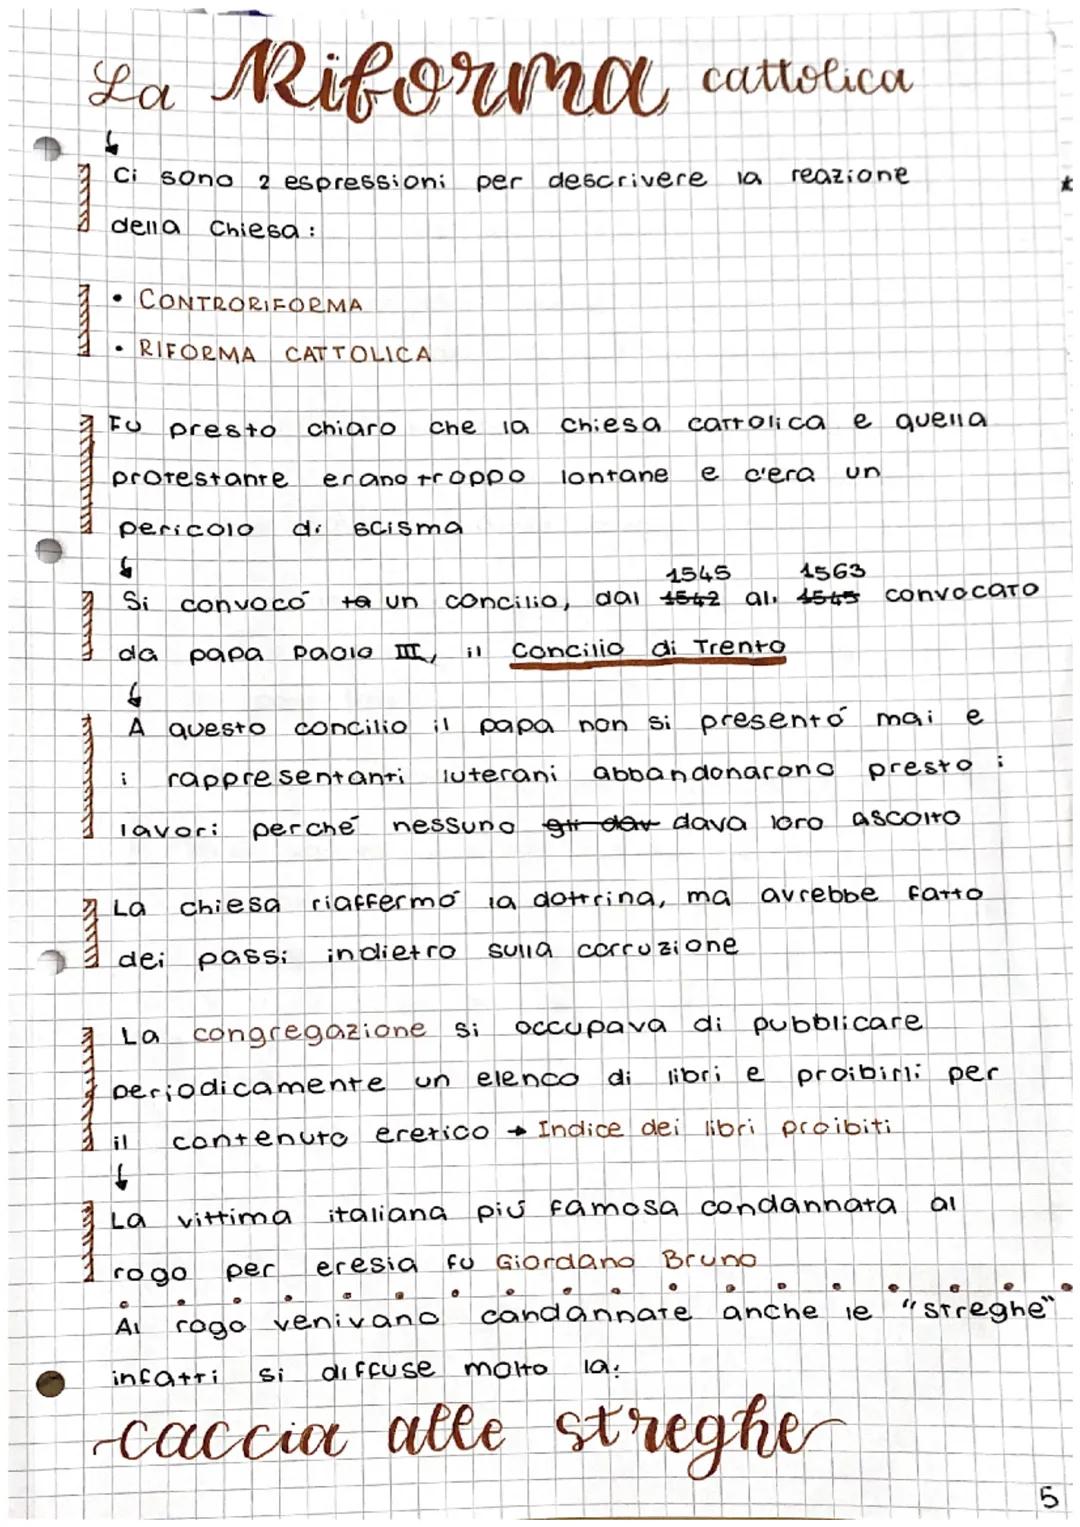 La Riforma cattolica
Ci sono 2 espressioni per descrivere la reazione
della Chiesa:
• CONTRORIFORMA
• RIFORMA CATTOLICA
Fu presto chiaro che la chiesa cattolica e quella
protestante erano troppo lontane e c'era un
pericolo di scisma
1545 1563
Si convocò ta un concilio, dal 1542 al 1545 convocato
da papa Paolo III, il Concilio di Trento
A questo concilio il papa non si presentò mai e
i rappresentanti luterani abbandonarono presto i
lavori perché nessuno gli dav dava loro ascolto
La chiesa riaffermò la dottrina, ma avrebbe fatto
dei passi indietro sulla corruzione
La congregazione si occupava di pubblicare
periodicamente un elenco di libri e proibirli per
il contenuto eretico → Indice dei libri proibiti
La vittima italiana più famosa condannata al
rogo per eresia fu Giordano Bruno
Al rogo venivano condannate anche le "streghe"
infatti si diffuse molto la:
caccia alle streghe
5